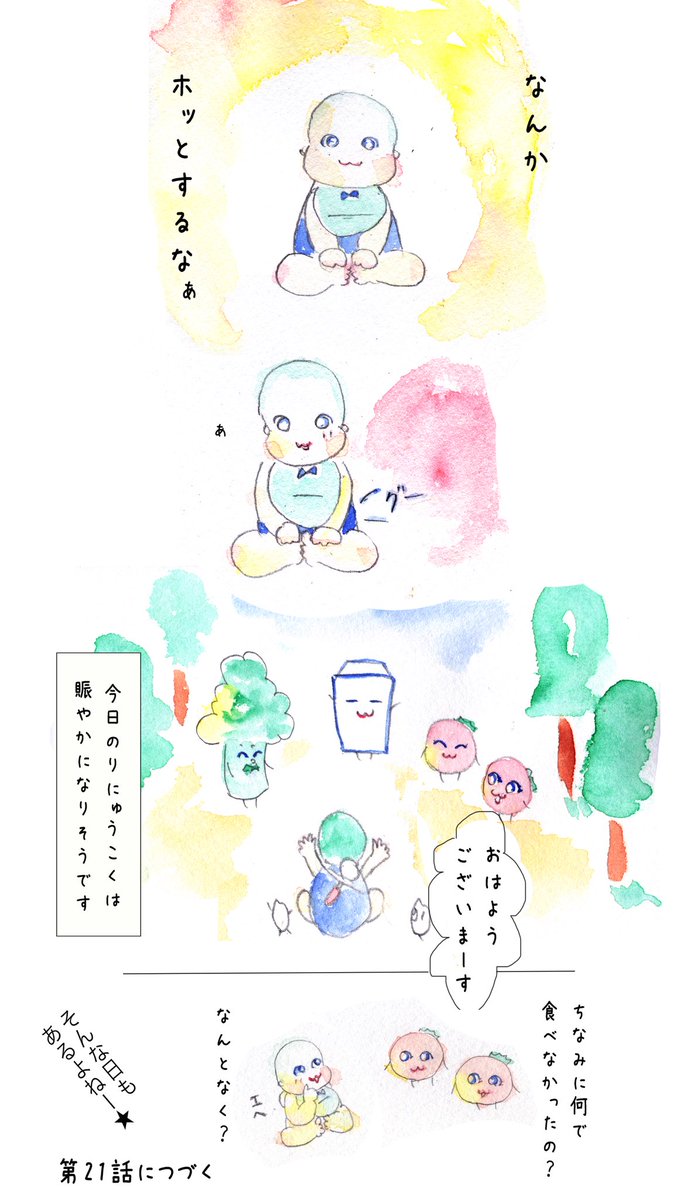 なんか
ホッとするなぁ
ぁ
グー
今日のりにゅうこくは
賑やかになりそうです
おはよう
ございまーす
ちなみに何で
食べなかったの?
なんとなく?
エへ
そんな日も
あるよねー★
第21話につづく